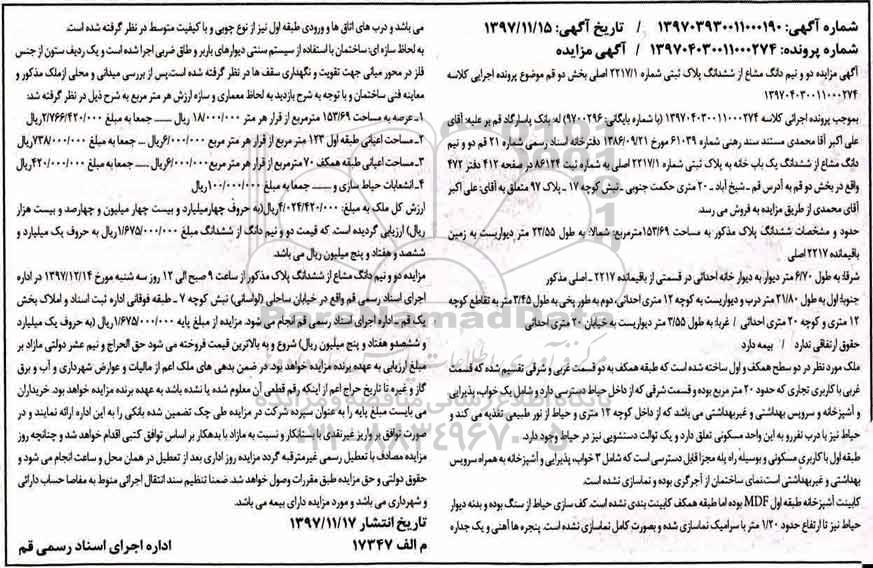 شماره آگهی: ۱۳۹۷۰۳۹۳۰۰۱۱۰۰۰۱۹۰ / تاریخ آگهی: ۱۳۹۷/۱۱/۱۵
شماره پرونده: ۱۳۹۷۰۴۰۳۰۰۱۱۰۰۰۲۷۴ / آگهی مزایده
آگهی مزایده دو و نیم دانگ مشاع از ششدانگ پلاک ثبتی شماره ۲۲۱۷/۱ اصلی بخش دو قم موضوع پرونده اجرایی کلاسه
۱۳۹۷۰۴۰۳۰۰۱۱۰۰۰۲۷۴
بموجب پرونده اجرائی کلاسه ۱۳۹۷۰۴۰۳۰۰۱۱۰۰۰۲۷۴ (با شماره بایگانی: ۹۷۰۰۲۹۶) له: بانک پاسارگاد قم بر علیه: آقای
علی اکبر آقا محمدی مستند سند رهنی شماره ۶۱۰۳۹ مورخ ۱۳۸۶/۰۹/۲۱ دفترخانه اسناد رسمی شماره ۲۱ قم دو و نیم
دانگ مشاع از ششدانگ یک باب خانه به پلاک ثبتی شماره ۲۲۱۷/۱ اصلی به شماره ثبت ۸۶۱۲۴ در صفحه ۴۱۲ دفتر ۴۷۲
واقع در بخش دو قم به آدرس قم ـ شیخ آباد ـ ۲۰ متری حکمت جنوبی ـ نبش کوچه ۱۷ ـ پلاک ۹۷ متعلق به آقای: علی اکبر
آقای محمدی از طریق مزایده به فروش می رسد.
حدود و مشخصات ششدانگ پلاک مذکور به مساحت ۱۵۳/۶۹مترمربع: شمالا: به طول ۲۳/۵۵ متر دیواریست به زمین
باقیمانده ۲۲۱۷ اصلی
شرقا: به طول ۶/۷۰ متر دیوار به دیوار خانه احداثی در قسمتی از باقیمانده ۲۲۱۷ ـ اصلی مذکور
جنوبا: اول به طول ۲۱/۸۰ متر درب و دیواریست به کوچه ۱۲ متری احداثی، دوم به طور پخی به طول ۳/۴۵ متر به تقاطع کوچه
۱۲ متری و کوچه ۲۰ متری احداثی / غربا: به طول ۳/۵۵ متر دیواریست به خیابان ۲۰ متری احداثی
حقوق ارتفاقی ندارد / بیمه دارد
ملک مورد نظر در دو سطح همکف و اول ساخته شده است که طبقه همکف به دو قسمت غربی و شرقی تقسیم شده که قسمت
غربی با کاربری تجاری که حدود ۲۰ متر مربع بوده و قسمت شرقی که از داخل حیاط دسترسی دارد و شامل یک خواب، پذیرایی
و آشپزخانه و سرویس بهداشتی و غیربهداشتی می باشد که از داخل کوچه ۱۲ متری و حیاط از نور طبیعی تغذیه می کند و
حیاط نیز با درب نفررو به این واحد مسکونی تعلق دارد و یک توالت دستشویی نیز در حیاط وجود دارد.
طبقه اول با کاربری مسکونی و بوسیله راه پله مجزا قابل دسترسی است که شامل ۳ خواب، پذیرایی و آشپزخانه به همراه سرویس
بهداشتی و غیربهداشتی است.نمای ساختمان از آجرگری بوده و نماسازی نشده است.
کابینت آشپزخانه طبقه اول MDF بوده اما طبقه همکف کابینت بندی نشده است. کف سازی حیاط از سنگ بوده و بدنه دیوار
حیاط نیز تا ارتفاع حدود ۱/۲۰ متر با سرامیک نماسازی شده و بصورت کامل نماسازی نشده است. پنجره ها آهنی و یک جداره
می باشد و درب های اتاق ها و ورودی طبقه اول نیز از نوع چوبی و با کیفیت متوسط در نظر گرفته شده است.
به لحاظ سازه ای: ساختمان با استفاده از سیستم سنتی دیوارهای باربر و طاق ضربی اجرا شده است و یک ردیف ستون از جنس
فلز در محور میانی جهت تقویت و نگهداری سقف ها در نظر گرفته شده است.پس از بررسی میدانی و محلی ازملک مذکور و
معاینه فنی ساختمان و با توجه به شرح بازدید به لحاظ معماری و سازه ارزش هر متر مربع به شرح ذیل در نظر گرفته شد:
۱ـ عرصه به مساحت ۱۵۳/۶۹ مترمربع از قرار هر متر ۱۸/۰۰۰/۰۰۰ ریال ـــــ جمعا به مبلغ ۲/۷۶۶/۴۲۰/۰۰۰ریال
۲ـ مساحت اعیانی طبقه اول ۱۲۳ متر مربع از قرار هر متر مربع ۶/۰۰۰/۰۰۰ریال ــ جمعا به مبلغ ۷۳۸/۰۰۰/۰۰۰ریال
۳ـ مساحت اعیانی طبقه همکف ۷۰ مترمربع از قرار هر مترمربع ۶/۰۰۰/۰۰۰ریال ــ جمعا به مبلغ ۴۲۰/۰۰۰/۰۰۰ریال
۴ـ انشعابات حیاط سازی و ـــــ جمعا به مبلغ ۱۰۰/۰۰۰/۰۰۰ریال
ارزش کل ملک به مبلغ: ۴/۰۲۴/۴۲۰/۰۰۰ریال(به حروف چهارمیلیارد و بیست چهار میلیون و چهارصد و بیست هزار
ریال) ارزیابی گردیده است. که قیمت دو و نیم دانگ از ششدانگ مبلغ ۱/۶۷۵/۰۰۰/۰۰۰ریال به حروف یک میلیارد و
ششصد و هفتاد و پنج میلیون ریال می باشد.
مزایده دو و نیم دانگ مشاع از ششدانگ پلاک مذکور از ساعت ۹ صبح الی ۱۲ روز سه شنبه مورخ ۱۳۹۷/۱۲/۱۴ در اداره
اجرای اسناد رسمی قم واقع در خیابان ساحلی (لواسانی) نبش کوچه ۷ ـ طبقه فوقانی اداره ثبت اسناد و املاک بخش
یک قم ـ اداره اجرای اسناد رسمی قم انجام می شود. مزایده از مبلغ پایه ۱/۶۷۵/۰۰۰/۰۰۰ریال (به حروف یک میلیارد
و ششصدو هفتاد و پنج میلیون ریال) شروع و به بالاترین قیمت فروخته می شود حق الحراج و نیم عشر دولتی مازاد بر
مبلغ ارزیابی به عهده برنده مزایده خواهد بود. در ضمن بدهی های ملک اعم از مالیات و عوارض شهرداری و آب و برق
گاز و غیره تا تاریخ حراج اعم از اینکه رقم قطعی آن معلوم شده یا نشده باشد به عهده برنده مزایده خواهد بود. خریداران
می بایست مبلغ پایه را به عنوان سپرده شرکت در مزایده طی چک تضمین شده بانکی را به این اداره ارائه نمایند و در
صورت توافق بر واریز غیرنقدی با بستانکار و نسبت به مازاد با بدهکار بر اساس توافق کتبی اقدام خواهد شد و چنانچه روز
مزایده مصادف با تعطیل رسمی غیرمترقبه گردد مزایده روز اداری بعد از تعطیل در همان محل و ساعت انجام می شود و
حقوق دولتی و حق مزایده طبق مقررات وصول خواهد شد. ضمنا تنظیم سند انتقال اجرائی منوط به مفاصا حساب دارائی
و شهرداری می باشد و مورد مزایده دارای بیمه می باشد.
تاریخ انتشار ۱۳۹۷/۱۱/۱۷
م الف ۱۷۳۴۷ اداره اجرای اسناد رسمی قم